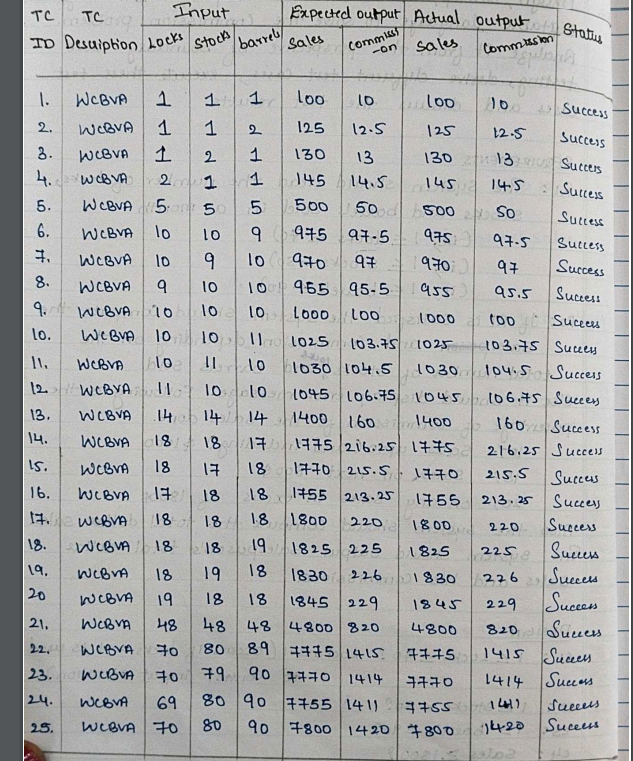 TC TC Input Expected output Actual output Status
ID Desuiption Locks stocks barrels sales commissi-on sales commission
1. WCBVA 1 1 1 100 10 100 10 Success
2. WCBVA 1 1 2 125 12.5 125 12.5 Success
3. WCBVA 1 2 1 130 13 130 13 Success
4. WCBVA 2 1 1 145 14.5 145 14.5 Success
5. WCBVA 5 5 5 500 50 500 50 Success
6. WCBVA 10 10 9 975 97.5 975 97.5 Success
7. WCBVA 10 9 10 970 97 970 97 Success
8. WCBVA 9 10 10 955 95.5 955 95.5 Success
9. WCBVA 10 10 10 1000 100 1000 100 Success
10. WCBVA 10 10 11 1025 103.75 1025 103.75 Success
11. WCBVA 10 11 10 1030 104.5 1030 104.5 Success
12. WCBVA 11 10 10 1045 106.75 1045 106.75 Success
13. WCBVA 14 14 14 1400 160 1400 160 Success
14. WCBVA 18 18 17 1775 216.25 1775 216.25 Success
15. WCBVA 18 17 18 1770 215.5 1770 215.5 Success
16. WCBVA 17 18 18 1755 213.25 1755 213.25 Success
17. WCBVA 18 18 18 1800 220 1800 220 Success
18. WCBVA 18 18 19 1825 225 1825 225 Success
19. WCBVA 18 19 18 1830 226 1830 226 Success
20 WCBVA 19 18 18 1845 229 1845 229 Success
21. WCBVA 48 48 48 4800 820 4800 820 Success
22. WCBVA 70 80 89 7775 1415 7775 1415 Success
23. WCBVA 70 79 90 7770 1414 7770 1414 Success
24. WCBVA 69 80 90 7755 1411 7755 1411 Success
25. WCBVA 70 80 90 7800 1420 7800 1420 Success